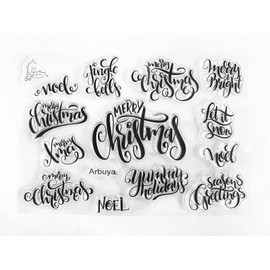 noel
Jingle
bells
merry
Christmas
Merry
& Bright
merry
Christmas
MERRY
Christmas
Let it
Snow
merry
Xmas
Arbuya
noel
merry
Christmas
NOEL
Yummy
holidays
Seasons
Greetings